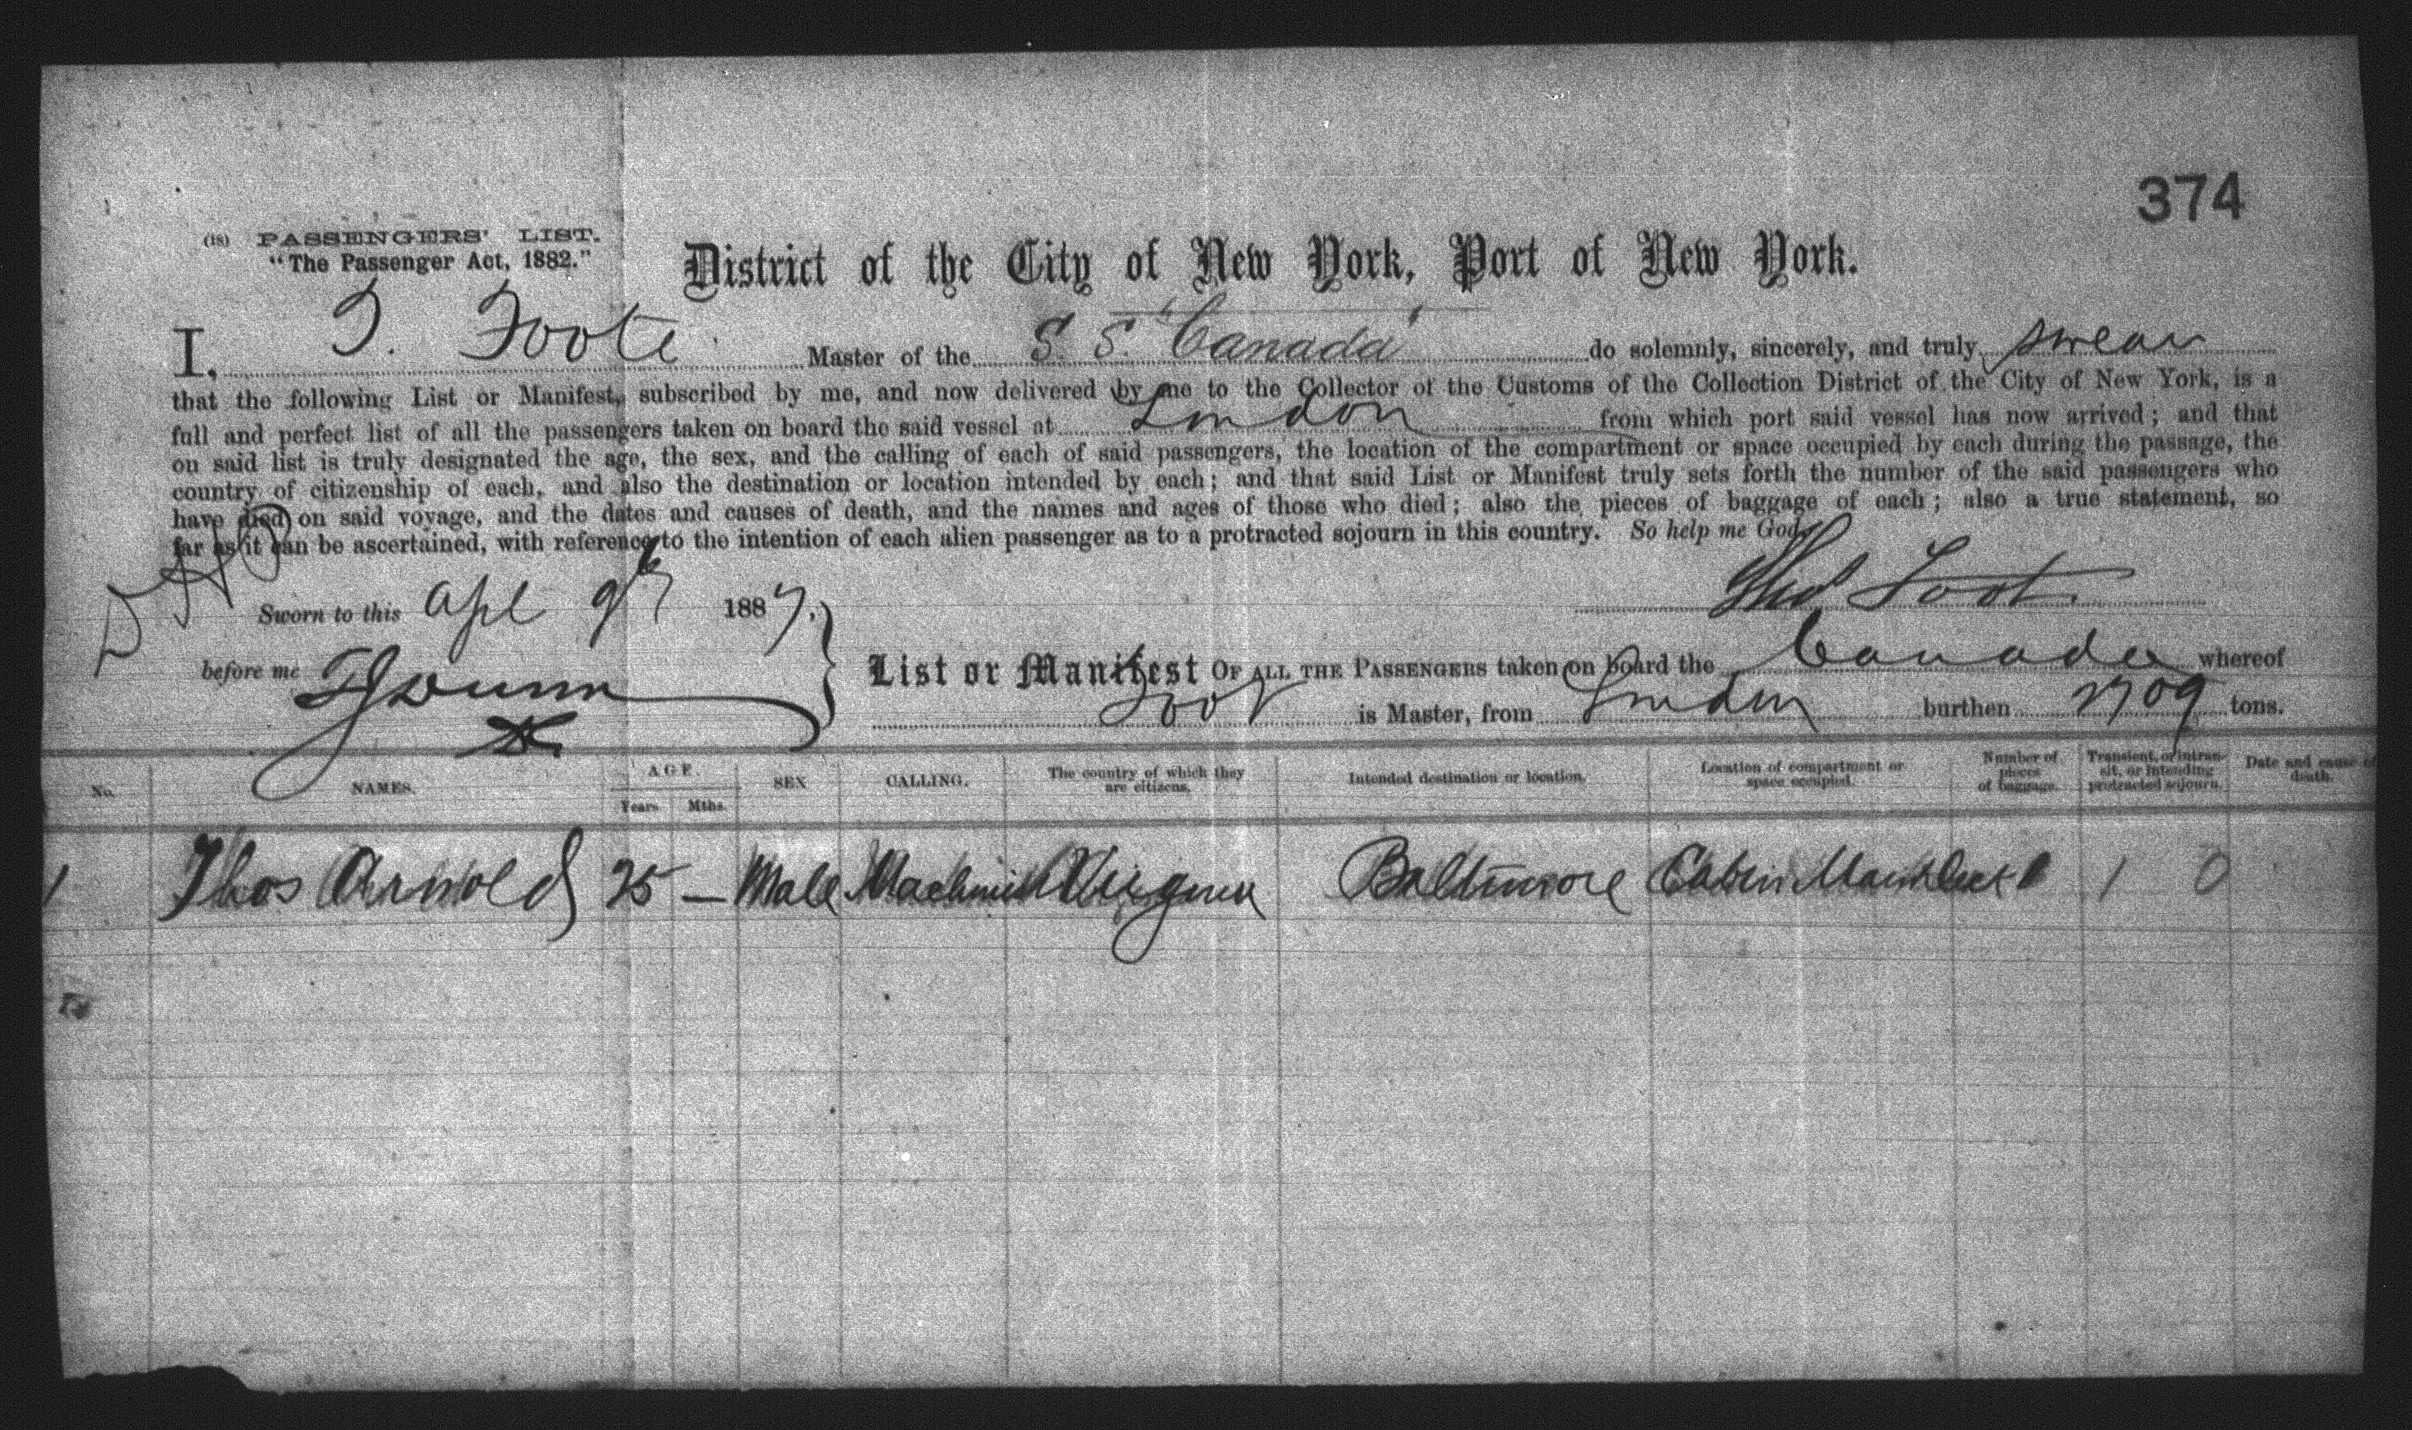 374
(18) PASSENGERS' LIST.
"The Passenger Act, 1882."
District of the City of New York, Port of New York.
I, T. Foote Master of the S. S. "Canada" do solemnly, sincerely, and truly swear
that the following List or Manifest, subscribed by me, and now delivered by me to the Collector of the Customs of the Collection District of the City of New York, is a
full and perfect list of all the passengers taken on board the said vessel at London from which port said vessel has now arrived; and that
on said list is truly designated the age, the sex, and the calling of each of said passengers, the location of the compartment or space occupied by each during the passage, the
country of citizenship of each, and also the destination or location intended by each; and that said List or Manifest truly sets forth the number of the said passengers who
have died on said voyage, and the dates and causes of death, and the names and ages of those who died; also the pieces of baggage of each; also a true statement, so
far as it can be ascertained, with reference to the intention of each alien passenger as to a protracted sojourn in this country. So help me God.
Thos Foot
Sworn to this Apl 9th 1887,
before me
List or Manifest OF ALL THE PASSENGERS taken on board the Canada whereof
Foot is Master, from London burthen 2709 tons.
No. NAMES. AGE. Years. Mths. SEX CALLING. The country of which they are citizens. Intended destination or location. Location of compartment or space occupied. Number of pieces of baggage. Transient, or intransit, or intending protracted sojourn. Date and cause of death.
1 Thos Arnold 25 — Male Machinist Virginia Baltimore Cabin Main Deck 1 0